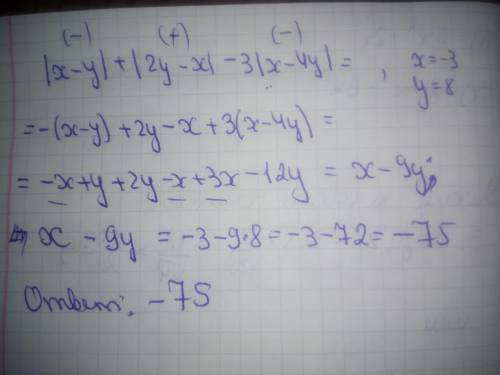 (-) (+) (-)
|x-y| + |2y-x| - 3|x-4y| = , x=-3
y=8
= -(x-y) + 2y - x + 3(x-4y) =
= -x+y+2y-x+3x-12y = x-9y;
x - 9y = -3-9·8 = -3-72 = -75
Ответ: -75